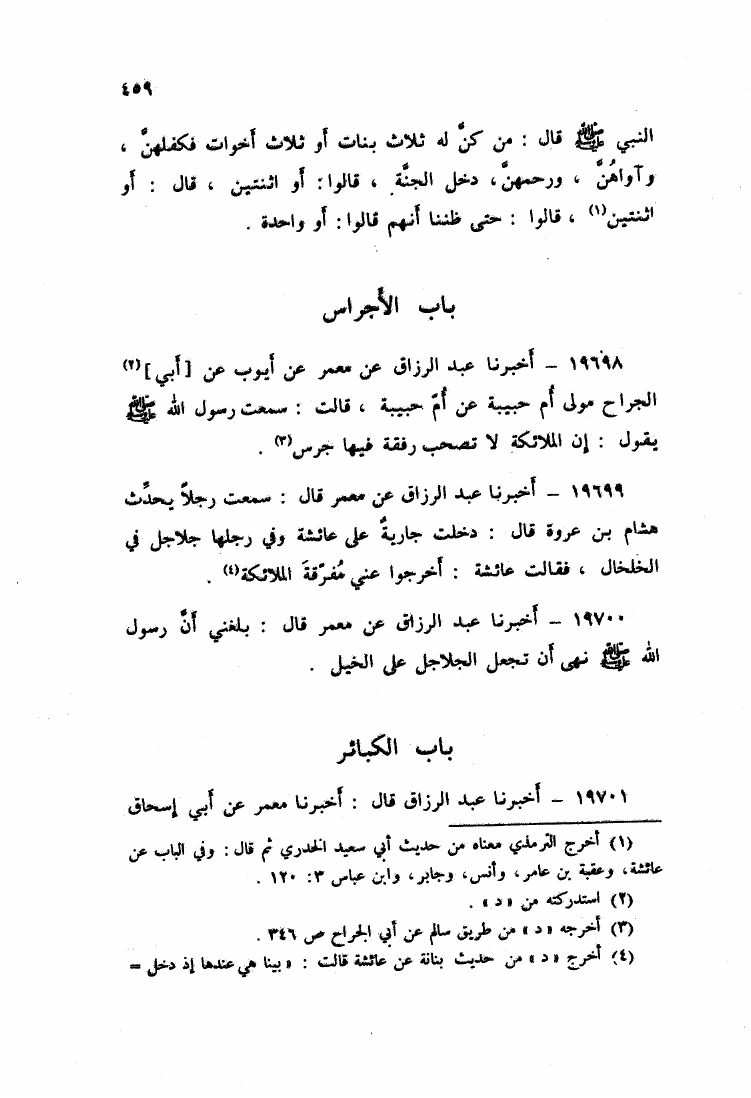 ٤٥٩
النبي ﷺ قال : من كنَّ له ثلاث بنات أو ثلاث أخوات فكفلهنَّ ،
وآواهُنَّ ، ورحمهنَّ، دخل الجنَّة ، قالوا : أو اثنتين ، قال : أو
اثنتين(١) ، قالوا : حتى ظننا أنهم قالوا : أو واحدة .
باب الأجراس
١٩٦٩٨ – أخبرنا عبد الرزاق عن معمر عن أيوب عن [أبي](٢)
الجراح مولى أم حبيبة عن أمّ حبيبة ، قالت : سمعت رسول الله ﷺ
يقول : إن الملائكة لا تصحب رفقة فيها جرس(٣) .
١٩٦٩٩ – أخبرنا عبد الرزاق عن معمر قال : سمعت رجلاً يحدِّث
هشام بن عروة قال : دخلت جاريةٌ على عائشة وفي رجلها جلاجل في
الخلخال ، فقالت عائشة : أخرجوا عني مُفرّقةَ الملائكة(٤) .
١٩٧٠٠ – أخبرنا عبد الرزاق عن معمر قال : بلغني أنَّ رسول
الله ﷺ نهى أن تجعل الجلاجل على الخيل .
باب الكبائر
١٩٧٠١ – أخبرنا عبد الرزاق قال : أخبرنا معمر عن أبي إسحاق
(١) أخرج الترمذي معناه من حديث أبي سعيد الخدري ثم قال : وفي الباب عن
عائشة، وعقبة بن عامر، وأنس، وجابر، وابن عباس ٣: ١٢٠ .
(٢) استدركته من «د» .
(٣) أخرجه «د» من طريق سالم عن أبي الجراح ص ٣٤٦ .
(٤) أخرج «د» من حديث بنانة عن عائشة قالت : «بينا هي عندها إذ دخل =